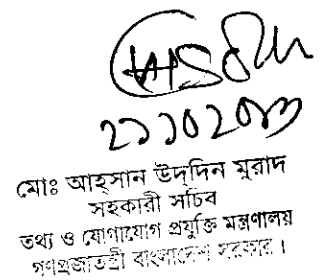 মোঃ আহ্সান উদ্দিন মুরাদ
সহকারী সচিব
তথ্য ও যোগাযোগ প্রযুক্তি মন্ত্রণালয়
গণপ্রজাতন্ত্রী বাংলাদেশ সরকার।